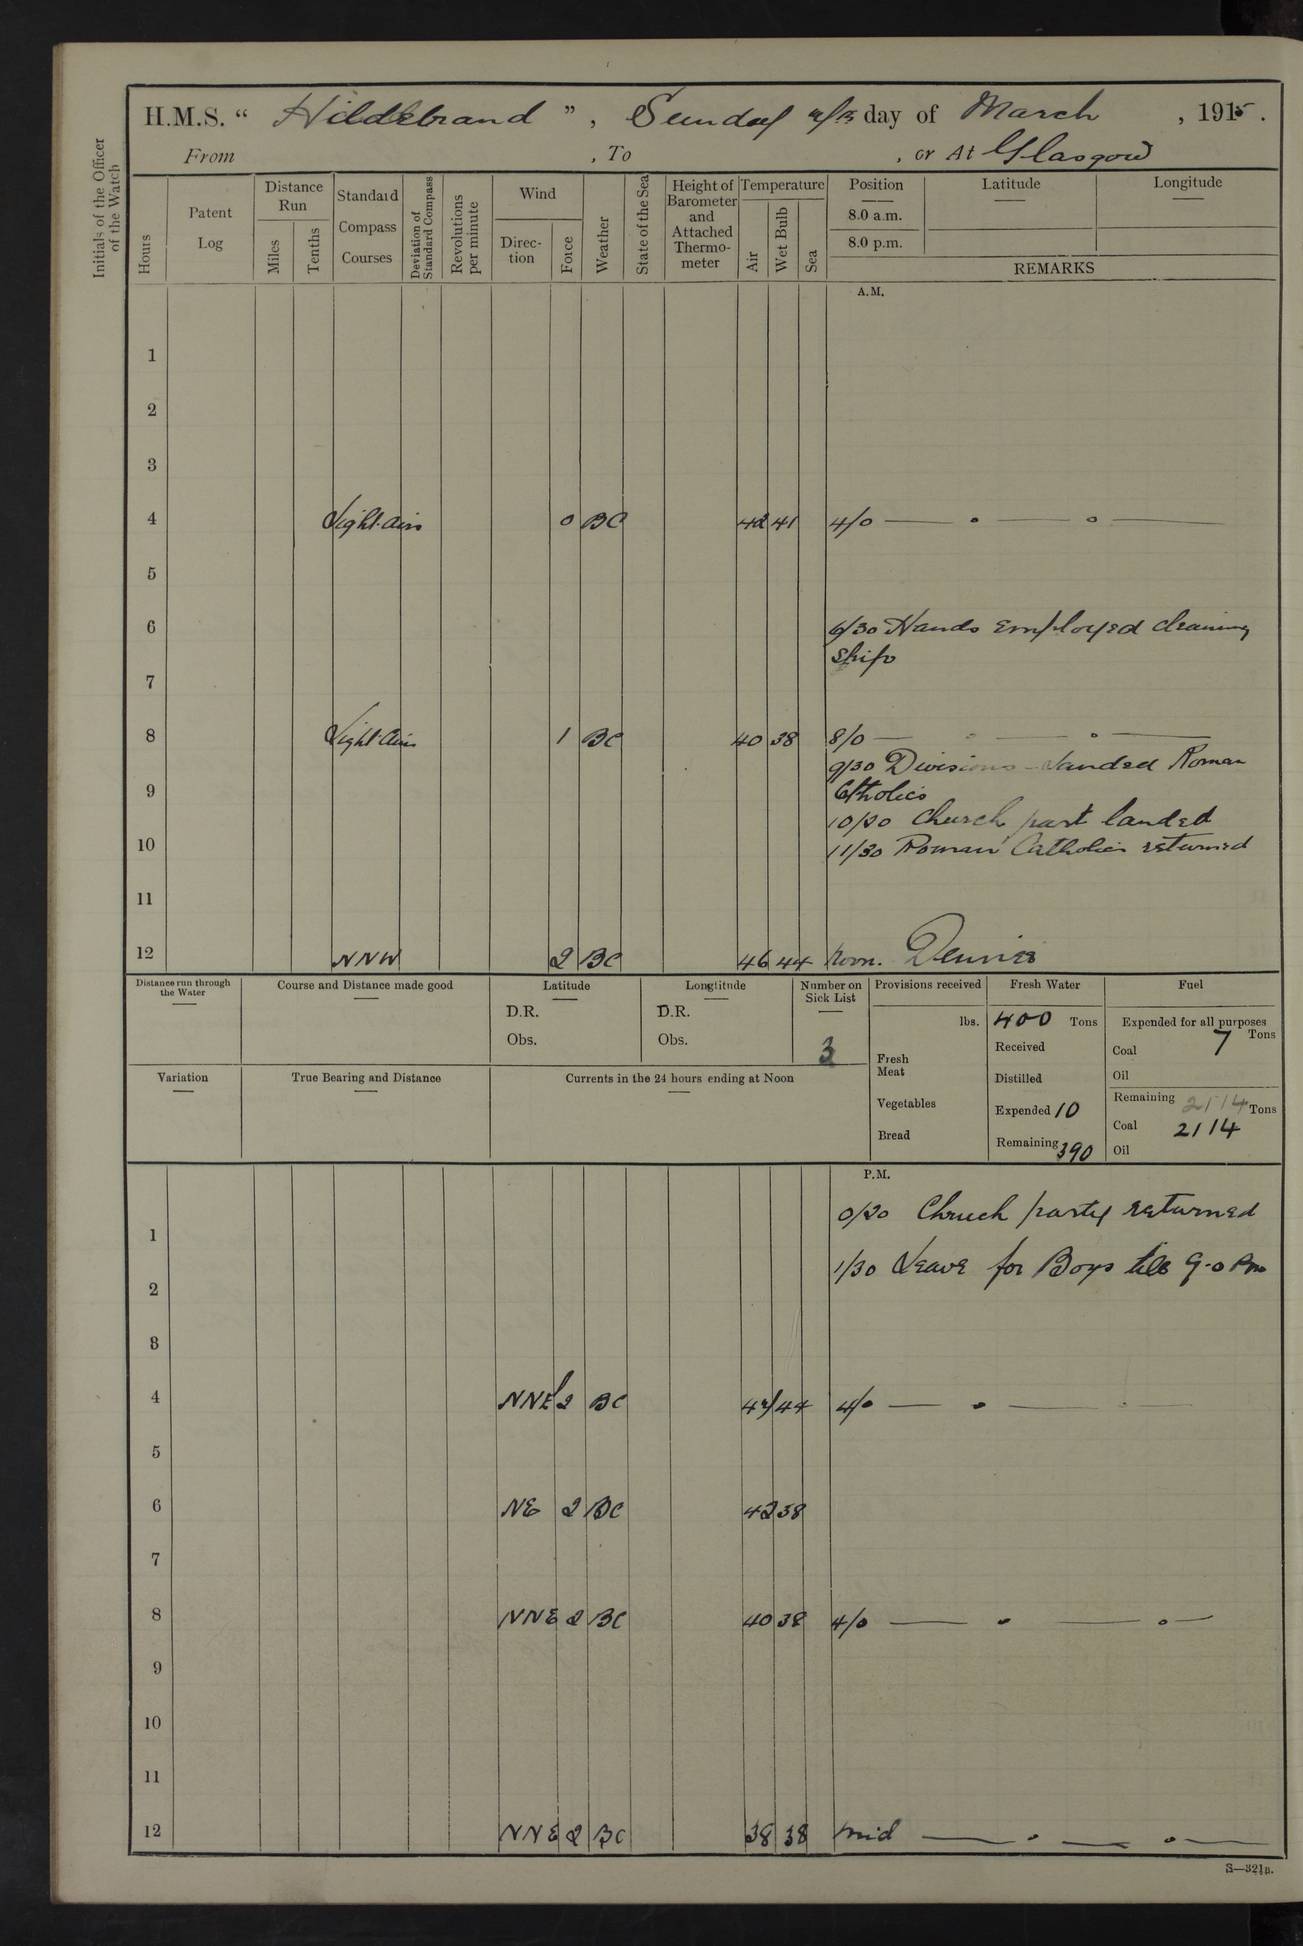 H.M.S. " Hildebrand ", Sunday day of March , 1915.
From , To , or At Glasgow
Initials of the Officer of the Watch
Hours
Patent Log
Distance Run
Miles
Tenths
Standard Compass Courses
Deviation of Standard Compass
Revolutions per minute
Wind
Direc-tion
Force
Weather
State of the Sea
Height of Barometer and Attached Thermo-meter
Temperature
Air
Wet Bulb
Sea
Position
8.0 a.m.
8.0 p.m.
Latitude
Longitude
REMARKS
A.M.
1
2
3
4 Light airs 0 BC 42 41 4/0 — " — " —
5
6 6/30 Hands employed cleaning
ship
7
8 Light airs 1 BC 40 38 8/0 — " — " —
9/30 Divisions - Landed Roman
9 Ctholics
10/20 Church part landed
10 11/30 Roman Catholics returned
11
12 NNW 2 BC 46 44 Noon.
Distance run through the Water
Course and Distance made good
Latitude
D.R.
Obs.
Longitude
D.R.
Obs.
Number on Sick List
3
Provisions received
lbs.
Fresh Meat
Vegetables
Bread
Fresh Water
400 Tons
Received
Distilled
Expended 10
Remaining 390
Fuel
Expended for all purposes
Tons
Coal 7
Oil
Remaining 2114 Tons
Coal 2114
Oil
Variation
True Bearing and Distance
Currents in the 24 hours ending at Noon
P.M.
0/20 Chruch party returned
1
1/30 Leave for Boys till 9-0 Pm
2
3
4 NNE 2 BC 44 4/0 — " — " —
5
6 NE 2 BC 42 38
7
8 NNE 2 BC 40 38 4/0 — " — " —
9
10
11
12 NNE 2 BC 38 38 Mid — " — " —
S—321B.